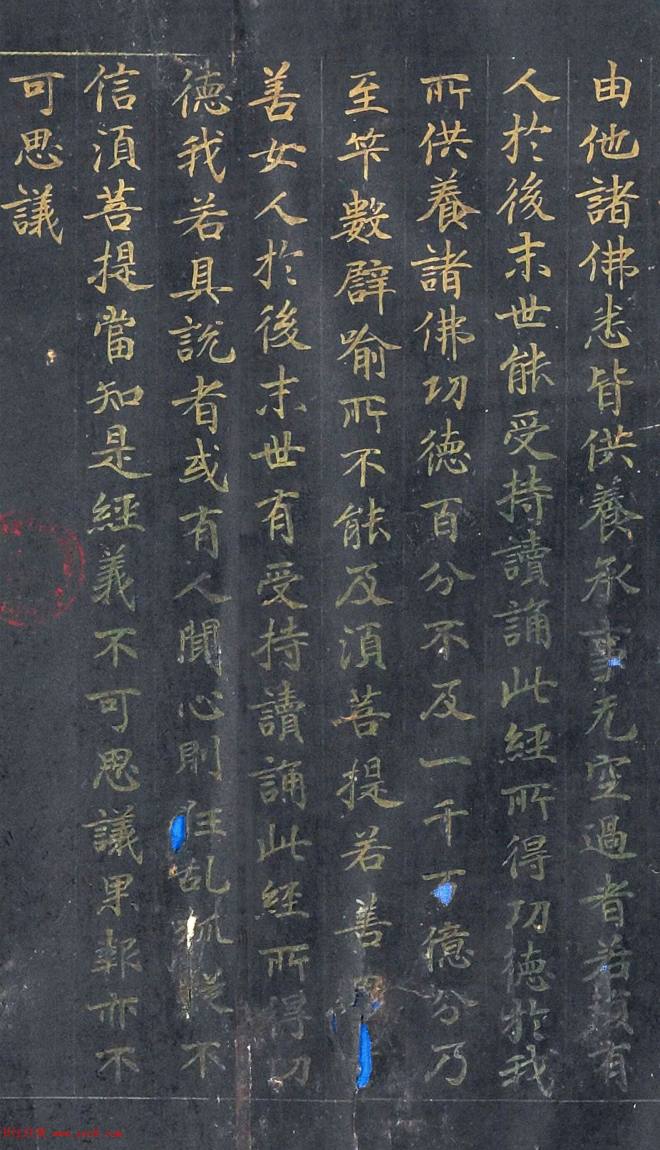 由他諸佛悉皆供養承事无空過者若復有
人於後末世能受持讀誦此經所得功德於我
所供養諸佛功德百分不及一千万億分乃
至筭數譬喻所不能及須菩提若善
善女人於後末世有受持讀誦此經所得功
德我若具說者或有人聞心則狂乱狐疑不
信須菩提當知是經義不可思議果報亦不
可思議